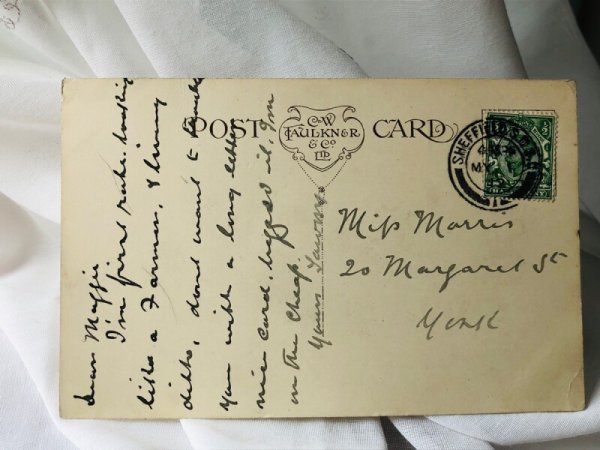 POST CARD
C.W.
FAULKNER
& Co
LTD.
SHEFFIELD
MY
12
Dear Maggie
I'm first rate. looking
like a Farmer, & living
ditto, dont want to trouble
you with a long letter
nice card, biggest in
on the Cheap.
Yours
Miss Morris
20 Margaret St
York